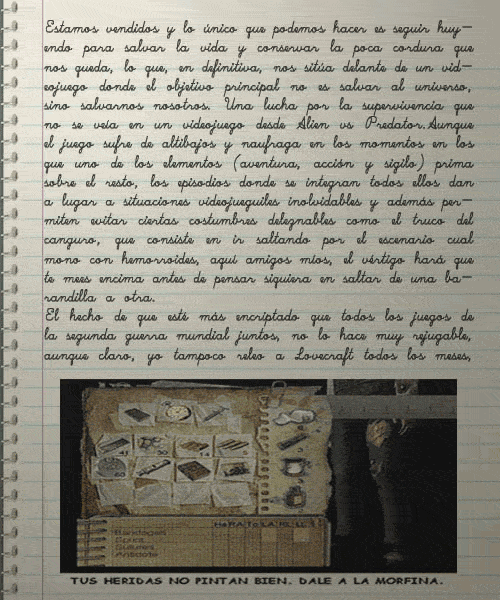 Estamos vendidos y lo único que podemos hacer es seguir huy-
endo para salvar la vida y conservar la poca cordura que
nos queda, lo que, en definitiva, nos sitúa delante de un vid-
eojuego donde el objetivo principal no es salvar al universo,
sino salvarnos nosotros. Una lucha por la supervivencia que
no se veía en un videojuego desde Alien vs Predator.Aunque
el juego sufre de altibajos y naufraga en los momentos en los
que uno de los elementos (aventura, acción y sigilo) prima
sobre el resto, los episodios donde se integran todos ellos dan
a lugar a situaciones videojueguiles inolvidables y además per-
miten evitar ciertas costumbres deleznables como el truco del
canguro, que consiste en ir saltando por el escenario cual
mono con hemorroides, aquí amigos míos, el vértigo hará que
te mees encima antes de pensar siquiera en saltar de una ba-
randilla a otra.
El hecho de que esté más encriptado que todos los juegos de
la segunda guerra mundial juntos, no lo hace muy rejugable,
aunque claro, yo tampoco releo a Lovecraft todos los meses,
41 30 14 5
60
He RA To LA RL LL
Bandages
Splint
Sutures
Antidote
TUS HERIDAS NO PINTAN BIEN. DALE A LA MORFINA.